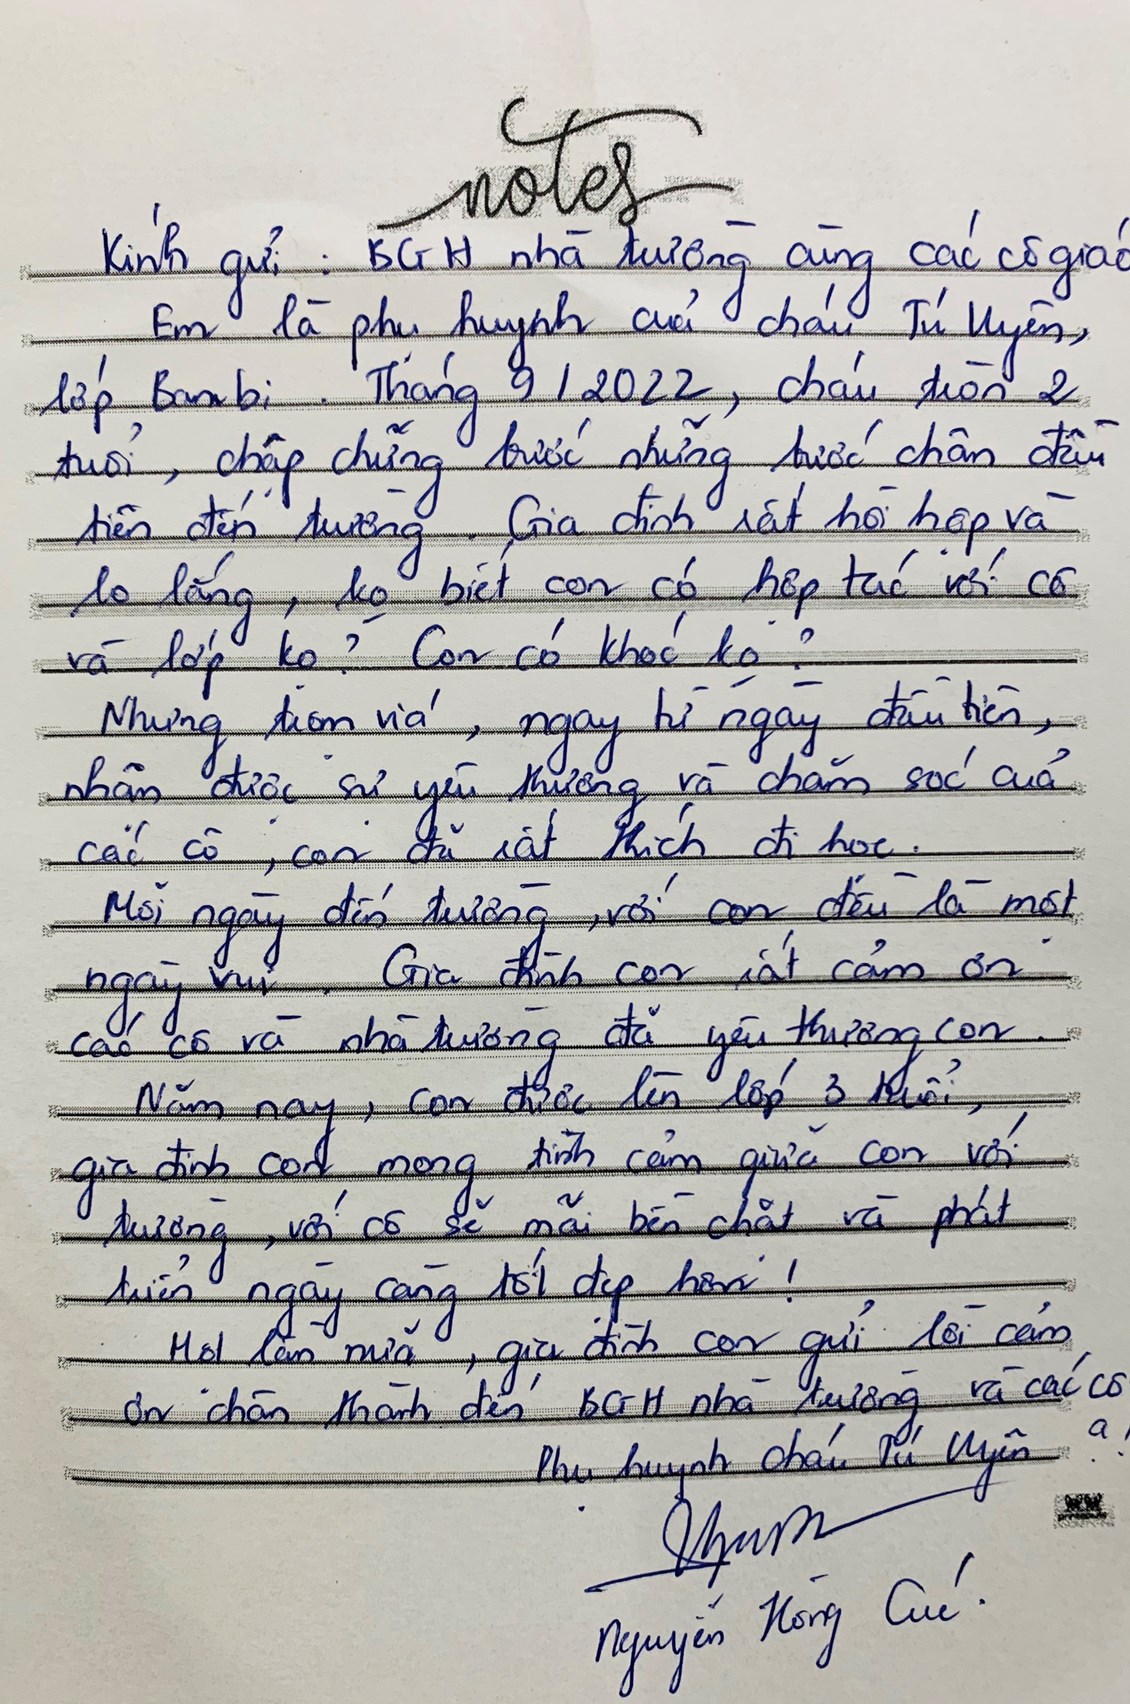 notes
Kính gửi : BGH nhà trường cùng các cô giáo
Em là phụ huynh của cháu Tú Uyên,
lớp Bambi. Tháng 9/2022, cháu tròn 2
tuổi, chập chững bước những bước chân đầu
tiên đến trường. Gia đình rất hồi hộp và
lo lắng, ko biết con có hợp tác với cô
và lớp ko? Con có khóc ko?
Nhưng trộm vía, ngay từ ngày đầu tiên,
nhận được sự yêu thương và chăm sóc của
các cô, con đã rất thích đi học.
Mỗi ngày đến trường, với con đều là một
ngày vui. Gia đình con rất cảm ơn
các cô và nhà trường đã yêu thương con.
Năm nay, con được lên lớp 3 tuổi,
gia đình con mong tình cảm giữa con với
trường, với cô sẽ mãi bền chặt và phát
triển ngày càng tốt đẹp hơn!
Một lần nữa, gia đình con gửi lời cảm
ơn chân thành đến BGH nhà trường và các cô
ạ!
Phụ huynh cháu Tú Uyên
Nguyễn Hồng Cúc.